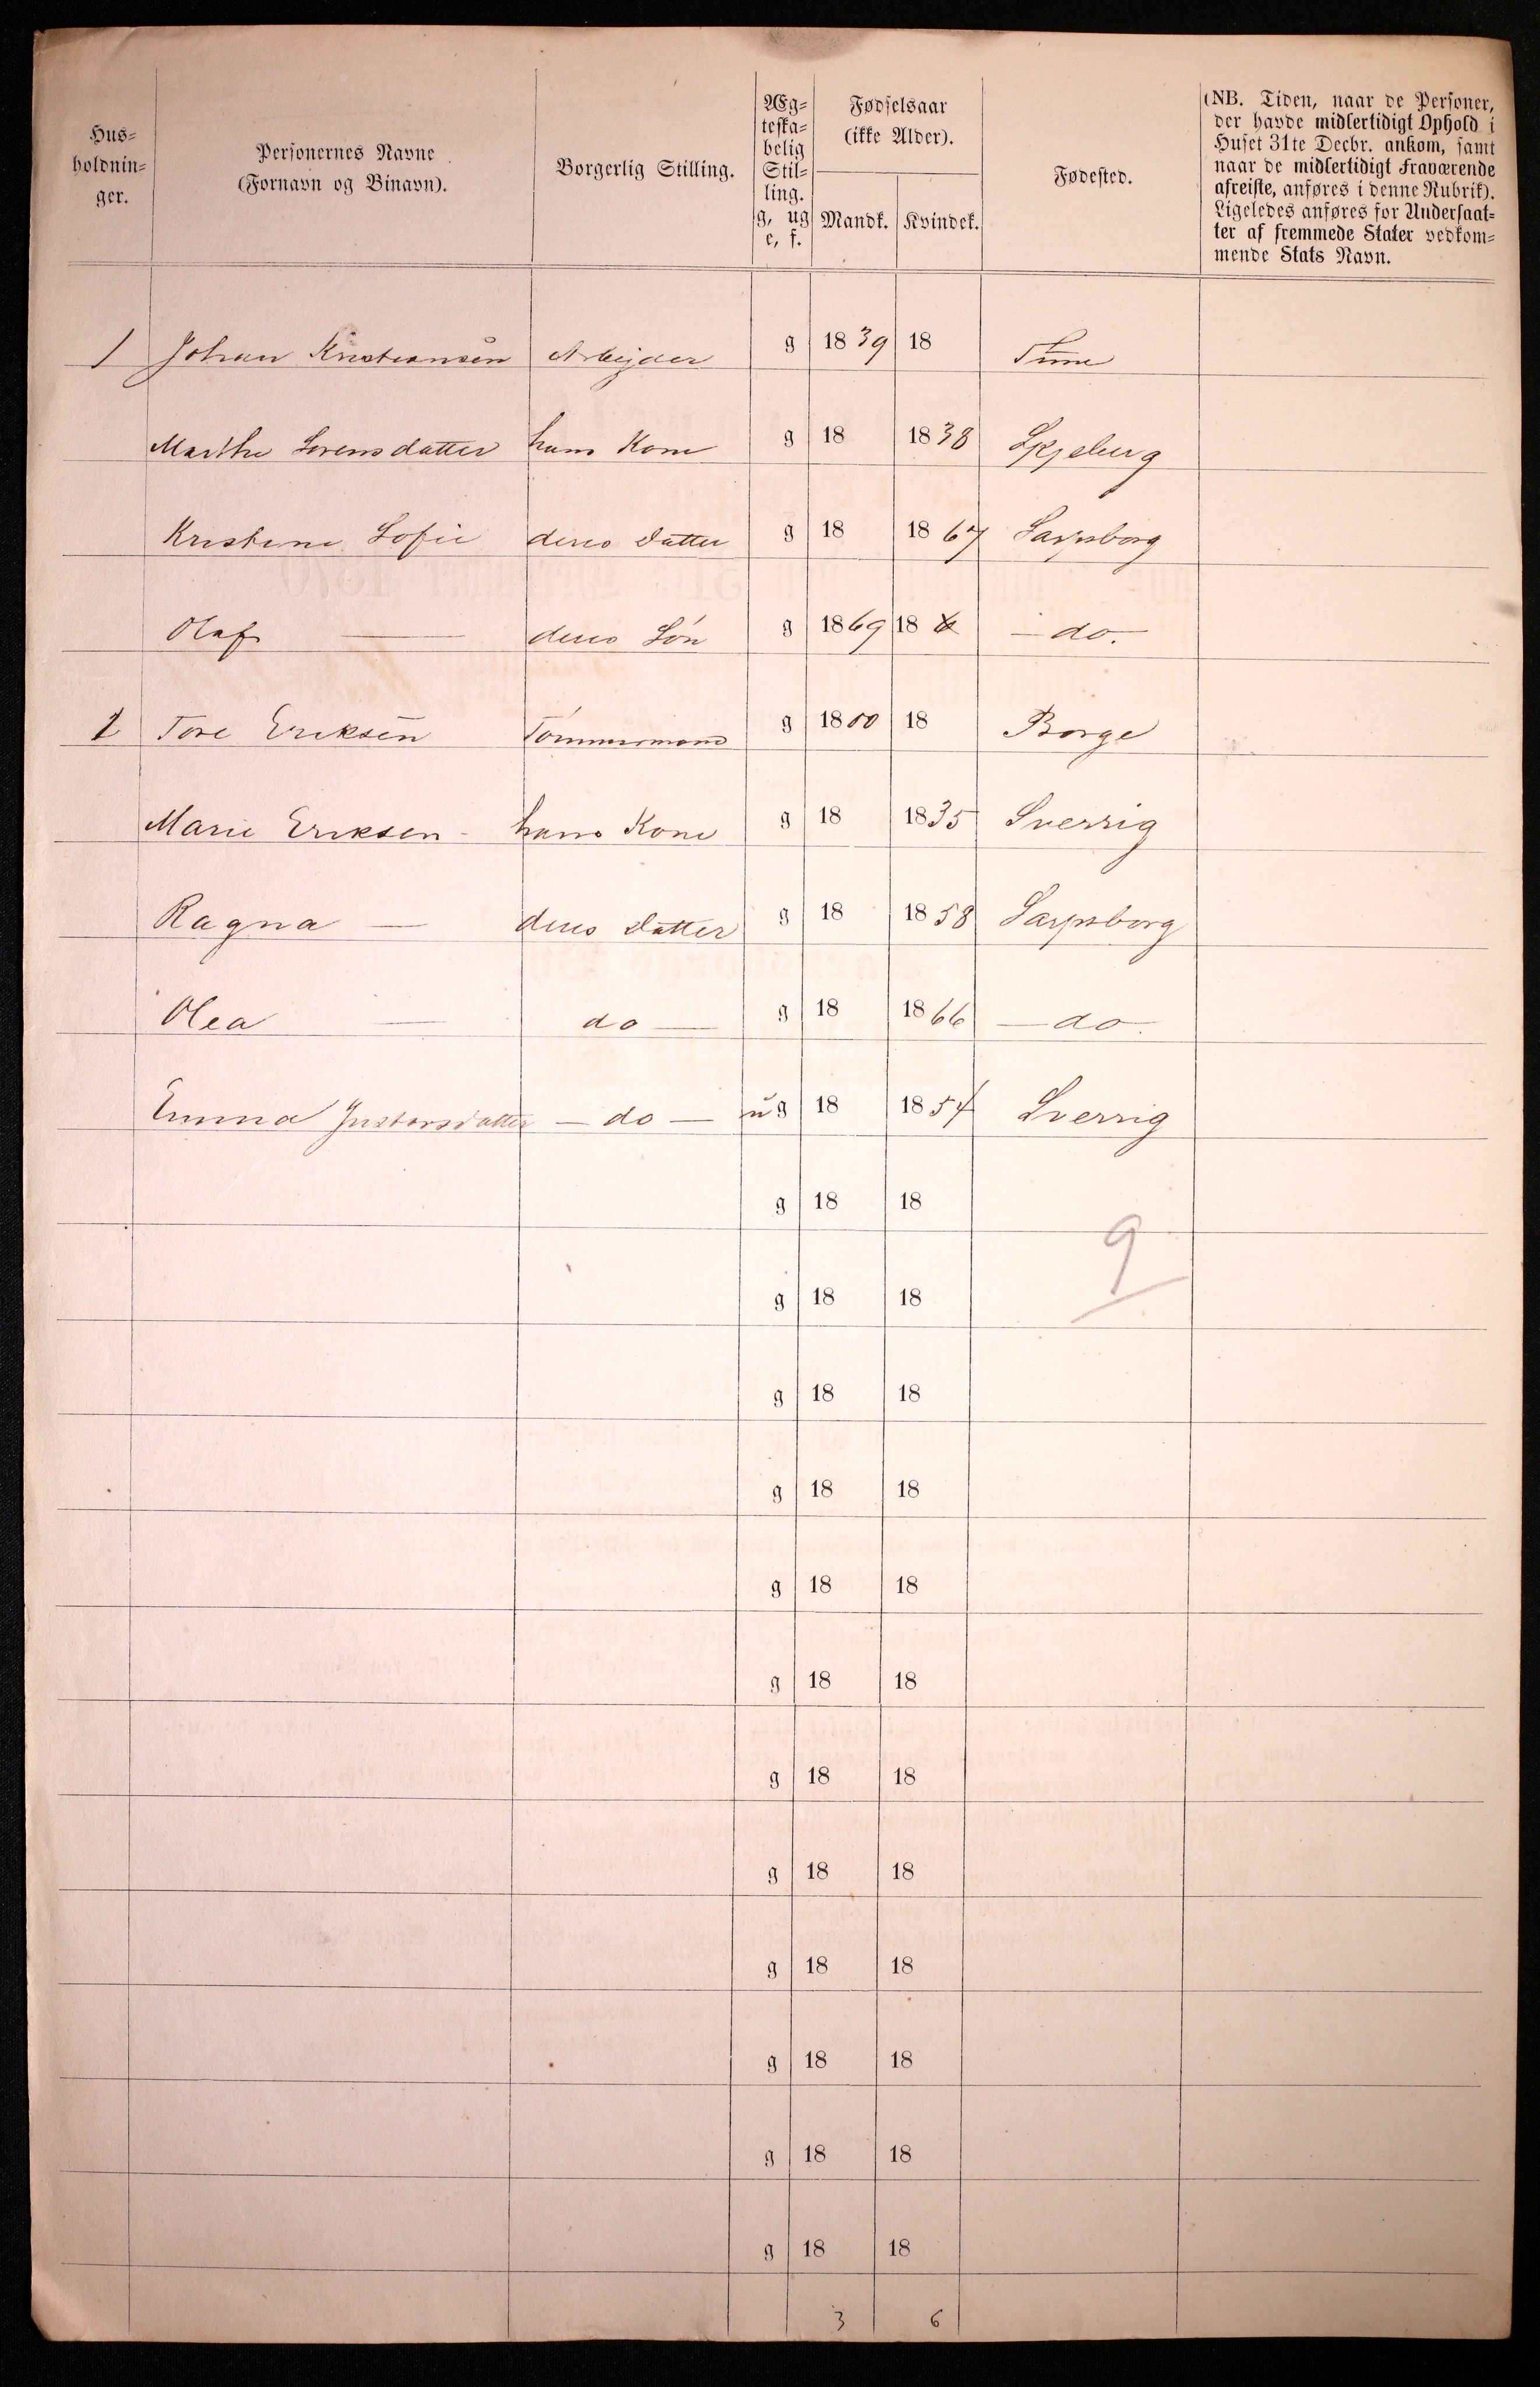 Hus-
holdnin-
ger.
Personernes Navne
(Fornavn og Binavn).
Borgerlig Stilling.
Æg-
teska-
belig
Stil-
ling.
g, ug
e, f.
Fødselsaar
(ikke Alder).
Mandk. Kvindek.
Fødested.
(NB. Tiden, naar de Personer,
der havde midlertidigt Ophold i
Huset 31te Decbr. ankom, samt
naar de midlertidigt Fraværende
afreiste, anføres i denne Rubrik).
Ligeledes anføres for Undersaat-
ter af fremmede Stater vedkom-
mende Stats Navn.
1 Johan Kristiansen Arbejder g 1839 18 Tune
Marthe Lorensdatter hans Kone g 18 1838 Skjeberg
Kristine Sofie deres Datter g 18 1867 Sarpsborg
Olaf — deres Søn g 1869 18 — do.
1 Tore Eriksen Tømmermand g 1800 18 Borge
Marie Eriksen - hans Kone g 18 1835 Sverrig
Ragna — deres Datter g 18 1858 Sarpsborg
Olea — do — g 18 1866 — do.
Emma Gustavsdatter — do — ug 18 1854 Sverrig
g 18 18
9
g 18 18
g 18 18
g 18 18
g 18 18
g 18 18
g 18 18
g 18 18
g 18 18
g 18 18
g 18 18
g 18 18
3 6